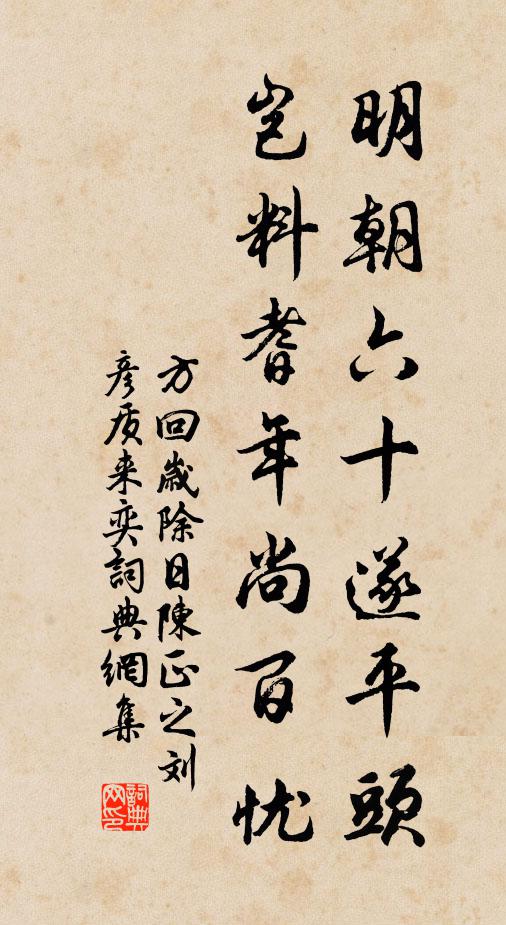 明朝六十遂平頭
岂料耆年尚百忧
方回歲除日陳正之刘
彦质来奕詞典網集
詞典网印